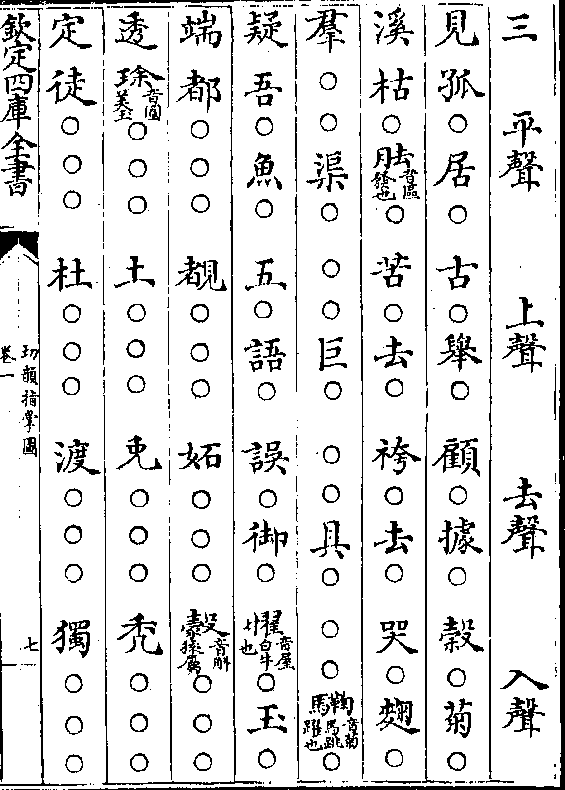 三 平聲 上聲 去聲 入聲
見 孤○居○ 古○舉○ 顧○據○ 穀○菊○
溪 枯○胠音區發也○ 苦○去○ 袴○去○ 哭○麴○
羣 ○○渠○ ○○巨○ ○○具○ ○○驧音菊馬跳躍也○
疑 吾○魚○ 五○語○ 誤○御○ 音屋白牛也○玉○
端 都○○○ 覩○○○ 妬○○○ 音斛猿屬○○○
透 㻌音圖美玉○○○ 土○○○ 兎○○○ 秃○○○
定 徒○○○ 杜○○○ 渡○○○ 獨○○○
欽定四庫全書
切韻指掌圖
卷一
七